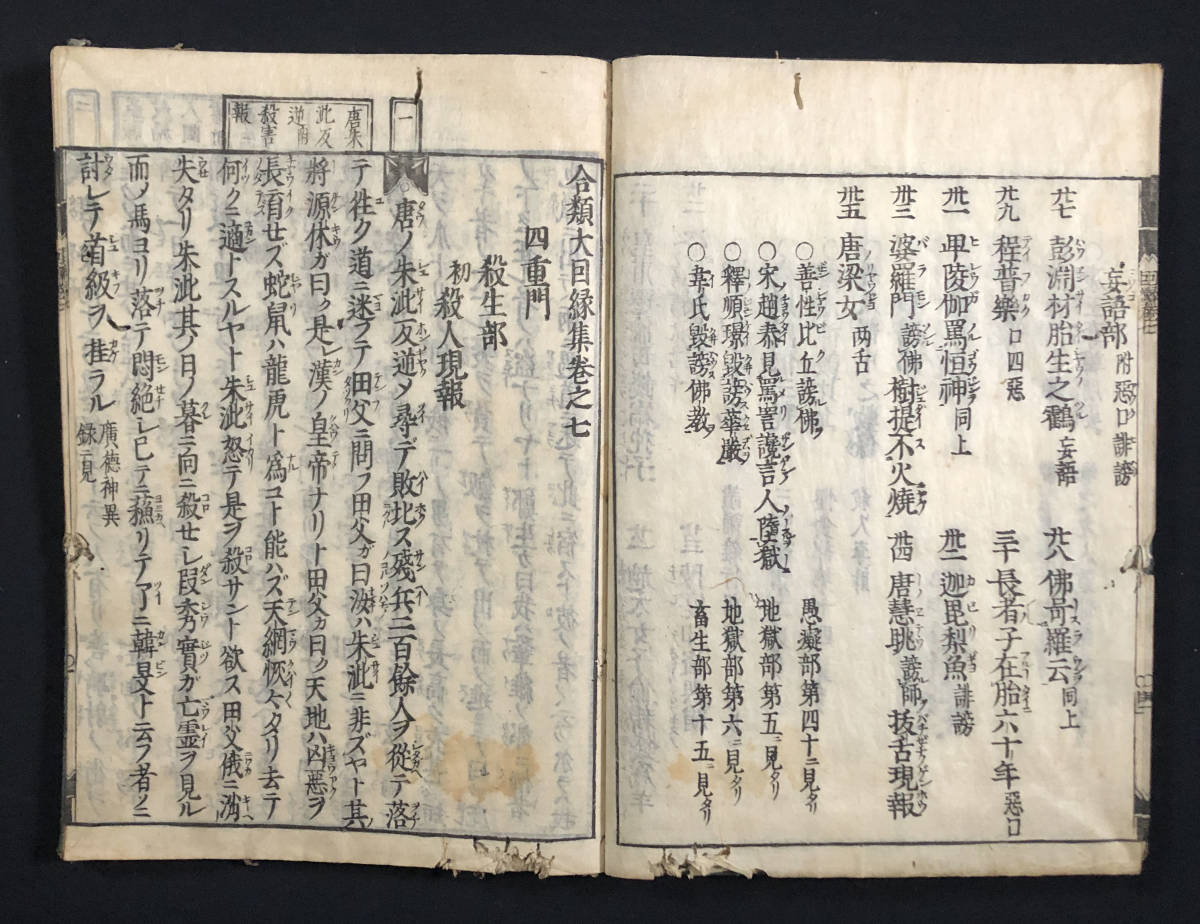 妄語部 附惡口誹謗
廿七 彭淵材胎生之鸖 妄語 廿八 佛哥羅云 同上
廿九 程普樂 口四惡 三十 長者子在胎六十年 惡口
卅一 甲陵伽罵恒神 同上 卅二 迦毘梨魚 誹謗
卅三 婆羅門謗佛樹提不火燒 卅四 唐慧眺謗師抜舌現報
卅五 唐梁女 两舌
○善性比丘謗佛 愚癡部第四十ニ見タリ
○宋趙泰見罵詈讒言人墮獄 地獄部第五ニ見タリ
○釋順璟毀謗華嚴 地獄部第六ニ見タリ
○韋氏毀謗佛教 畜生部第十五ニ見タリ
一
唐朱泚反逆殺害報
合類大因縁集巻之七
四重門
殺生部
初殺人現報
○唐ノ朱泚反逆メ尋デ敗北ス殘兵二百餘人ヲ從テ落
テ徃ク道ニ迷フテ田父ニ問フ田父ガ曰汝ハ朱泚ニ非ズヤト其ノ
將源休ガ曰ク是レ漢ノ皇帝ナリト田父ガ曰ク天地ハ凶惡ヲ
長育セズ蛇鼠ハ龍虎ト爲コト能ハズ天綱恢々タリ去テ
何クニ適トスルヤト朱泚怒テ是ヲ殺サント欲ス田父俄ニ消
失タリ朱泚其ノ日ノ暮ニ向ニ殺セレ段秀實ガ亡霊ヲ見ル
而メ馬ヨリ落テ悶絶シ已テ蘓リテアリニ韓旻ト云フ者ノニ
討レテ首級ヲ挂ラル 廣德神異録ニ見